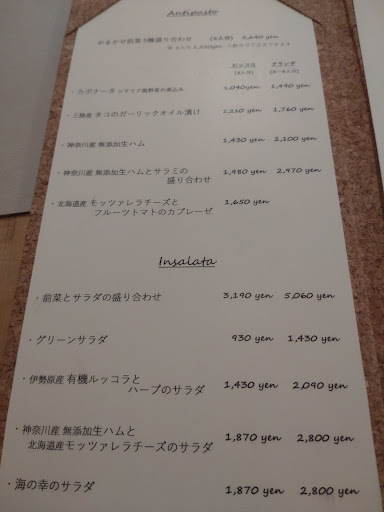 Antipasto
おまかせ前菜5種盛り合わせ (2人前) 2,640 yen
ピッコロ グランデ
・カポナータ シチリア風野菜の煮込み 1,040yen 1,490 yen
・三陸産 タコのガーリックオイル漬け 1,210 yen 1,760 yen
・神奈川産 無添加生ハム 1,430 yen 2,100 yen
・神奈川産 無添加生ハムとサラミの
盛り合わせ 1,980 yen 2,970 yen
・北海道産 モッツァレラチーズと 1,650 yen
フルーツトマトのカプレーゼ
Insalata
・前菜とサラダの盛り合わせ 3,190 yen 5,060 yen
・グリーンサラダ 930 yen 1,430 yen
・伊勢原産 有機ルッコラと
ハーブのサラダ 1,430 yen 2,090 yen
・神奈川産 無添加生ハムと
北海道産モッツァレラチーズのサラダ 1,870 yen 2,800 yen
・海の幸のサラダ 1,870 yen 2,800 yen